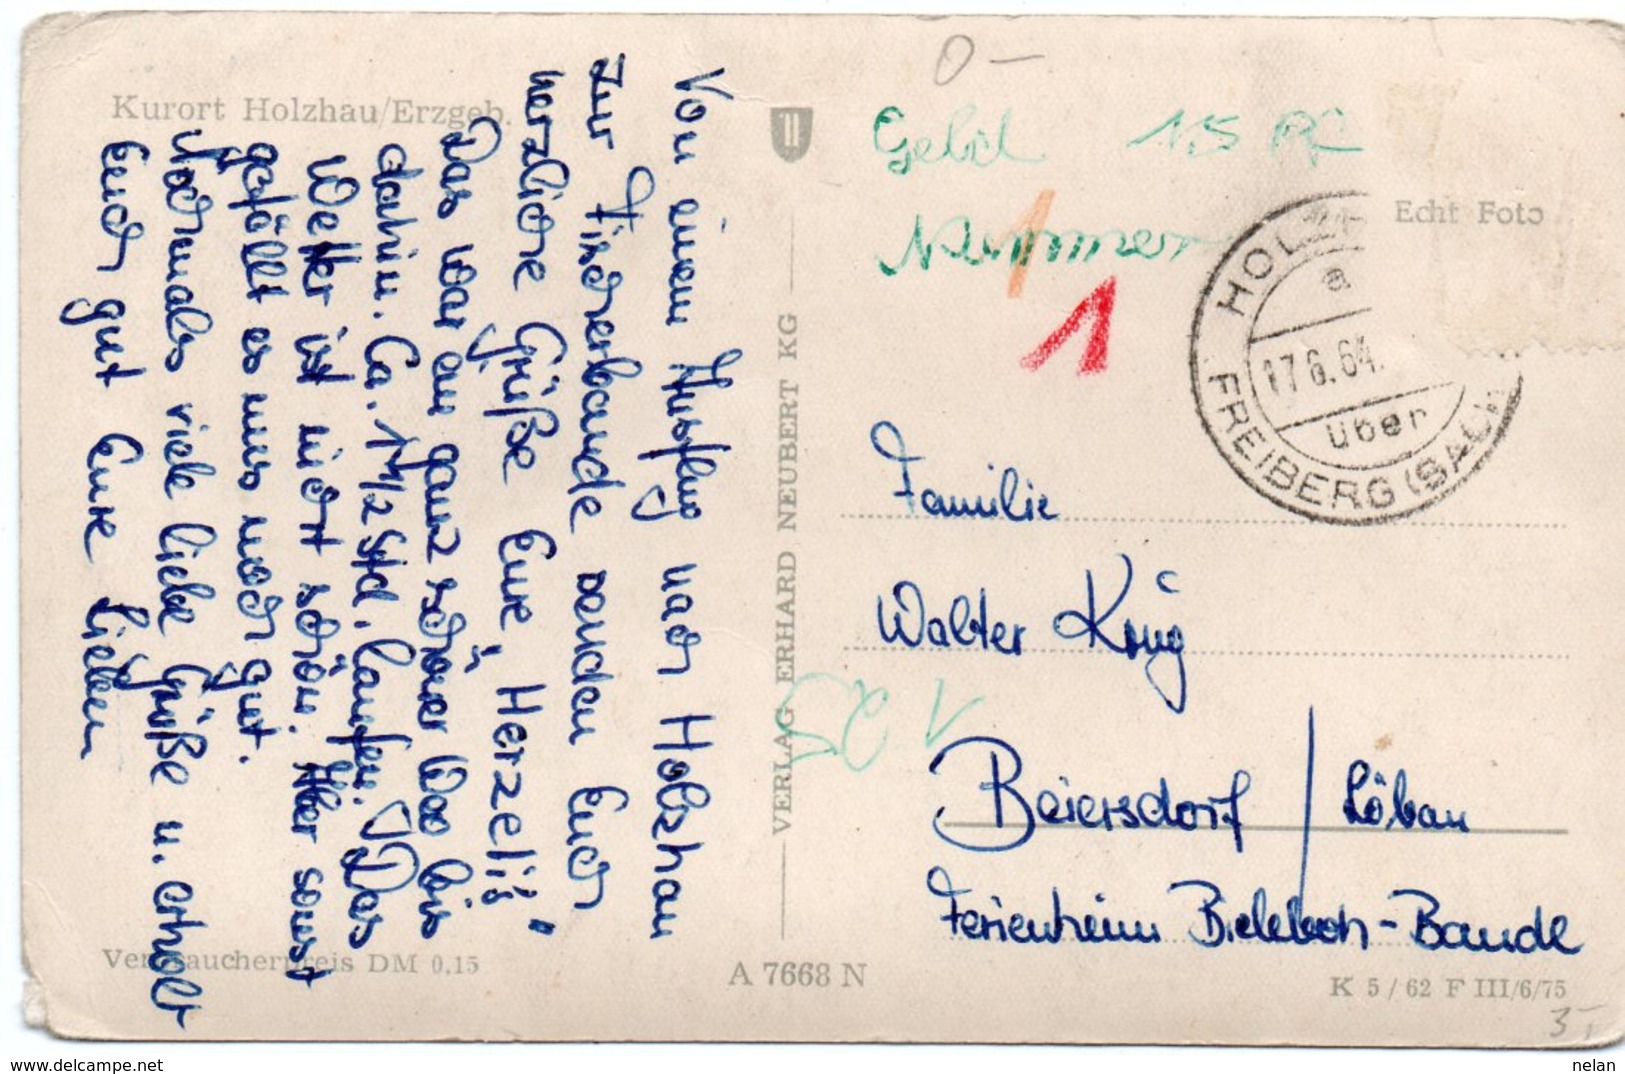 Kurort Holzhau/Erzgeb.
Von einem Ausflug nach Holzhau
zur Fischerbaude senden Euch
herzliche Grüße Eure „Herzeli's“
Das war ein ganz schöner Weg bis
dahin. Ca. 1 1/2 Std. laufen. Das
Wetter ist nicht schön. Aber sonst
gefällt es uns noch gut.
Nochmals viele liebe Grüße u. erholt
Euch gut Eure Lieben
Verbraucherpreis DM 0,15
VERLAG ERHARD NEUBERT KG
A 7668 N
0 –
15 Pf
Nummer
1
1
Echt Foto
HOLZH
a
17.6.64.
über
FREIBERG (SACH
125
Familie
Walter Krug
Beiersdorf / Löbau
Ferienheim Bieleboh-Baude
K 5/62 F III/6/75
3,-
nelan